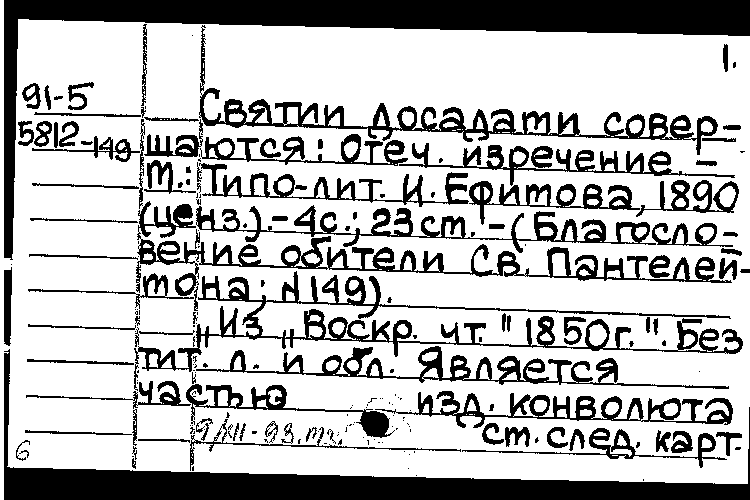 1.
91-5
5812-149
Святии досадами совер-
шаются: Отеч. изречение. –
М.: Типо-лит. И. Ефимова, 1890
(ценз.). – 4с.; 23 ст. – (Благосло-
вение обители Св. Пантелей-
мона; N149).
„Из „Воскр. чт." 1850г.". Без
тит. л. и обл. Является
частью изд. конволюта
9/XII-93. тх. ст. след. карт.
6